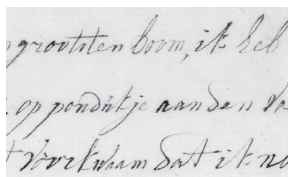 grootsten boom, ik heb
op pondutje aan den
voorkwam dat ik